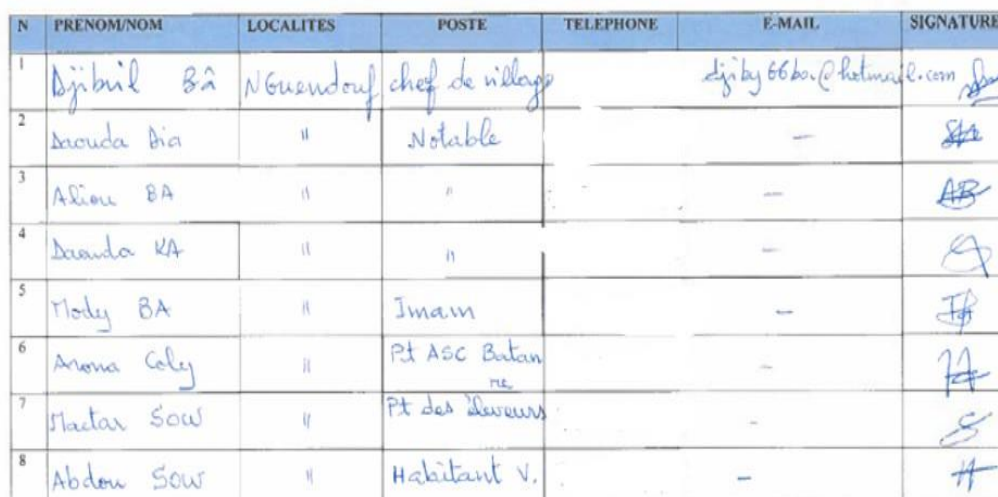 N PRENOM/NOM LOCALITES POSTE TELEPHONE E-MAIL SIGNATURE
1 Djibril Bâ NGuendouf chef de village djiby66ba@hotmail.com
2 Daouda Dia " Notable -
3 Aliou BA " " -
4 Daouda KA " " -
5 Mody BA " Imam -
6 Arona Coly " Pt ASC Batan -
re
7 Mactar SOW " Pt des éleveurs -
8 Abdou SOW " Habitant V. -